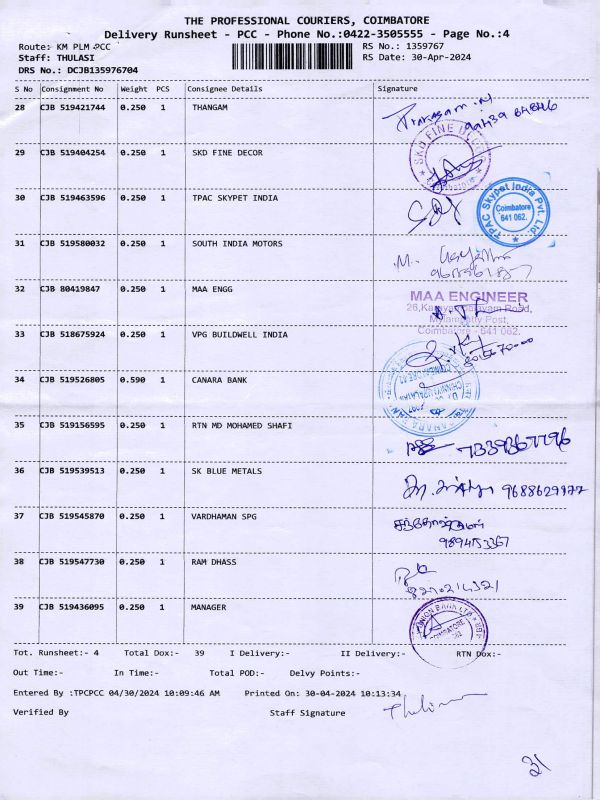 THE PROFESSIONAL COURIERS, COIMBATORE
Delivery Runsheet - PCC - Phone No.:0422-3505555 - Page No.:4
Route: KM PLM PCC RS No.: 1359767
Staff: THULASI RS Date: 30-Apr-2024
DRS No.: DCJB135976704
S No Consignment No Weight PCS Consignee Details Signature
28 CJB 519421744 0.250 1 THANGAM
29 CJB 519404254 0.250 1 SKD FINE DECOR SKD FINE DECOR
30 CJB 519463596 0.250 1 TPAC SKYPET INDIA TPAC Skypet India Pvt. Ltd. Coimbatore 641 062.
31 CJB 519580032 0.250 1 SOUTH INDIA MOTORS
32 CJB 80419847 0.250 1 MAA ENGG MAA ENGINEER
Coimbatore - 641 062.
33 CJB 518675924 0.250 1 VPG BUILDWELL INDIA
34 CJB 519526805 0.590 1 CANARA BANK
35 CJB 519156595 0.250 1 RTN MD MOHAMED SHAFI
36 CJB 519539513 0.250 1 SK BLUE METALS 9688629977
37 CJB 519545870 0.250 1 VARDHAMAN SPG
38 CJB 519547730 0.250 1 RAM DHASS
39 CJB 519436095 0.250 1 MANAGER
Tot. Runsheet:- 4 Total Dox:- 39 I Delivery:- II Delivery:- RTN Dox:-
Out Time:- In Time:- Total POD:- Delvy Points:-
Entered By :TPCPCC 04/30/2024 10:09:46 AM Printed On: 30-04-2024 10:13:34
Verified By Staff Signature
31